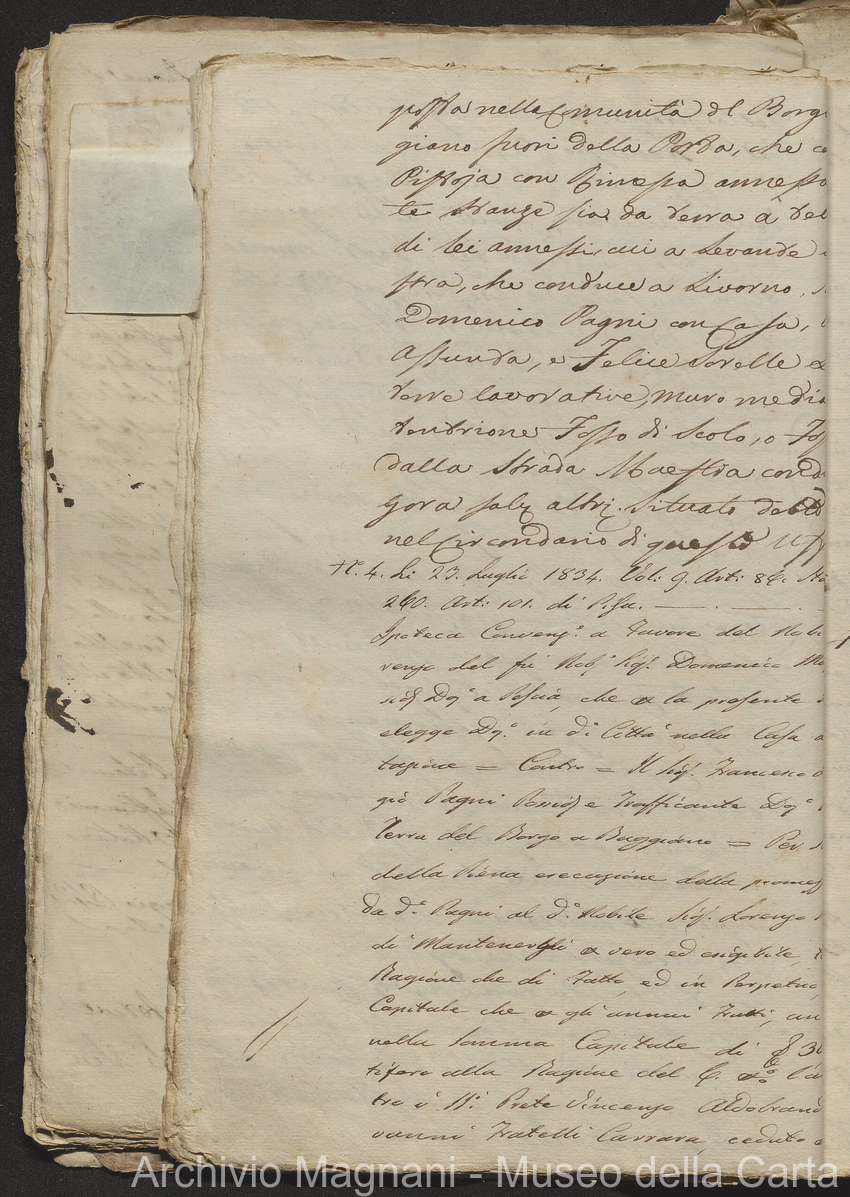 posta nella Comunità del Borg
giano fuori della Porta, che co
Pistoja con Rimessa annessa
te stanze sia da terra a tet
di lei annessi, cui a Levante
stra, che conduce a Livorno,
Domenico Pagni con Casa,
Assunda, e Felice Sorelle
terre lavorative, muro media
tentrione Fosso di Scolo, o Fos
dalla Strada Maestra cond
Gora salv. altri. Situato detto
nel Circondario di questo Uff
N.° 4. Li 23. Luglio 1834. Vol: 9. Art: 86.
260. Art: 101. di Pisa.
Ipoteca Convenz.e a Favore del Nobi
renzo del fù Nob.e Sig.r Domenico Ma
Dom.o a Pescia, che la presente
elegge Dom.o in d.a Città nella Casa
tazione = Contro = Il Sig.r Francesco
gio Pagni Possid. e Trafficante Dom.o
Terra del Borgo a Buggiano = Per
della Piena esecuzione della promes
da d.o Pagni al d.o Nobile Sig.r Lorenzo
di Mantenergli vero ed esigibile,
Ragione che di Fatto, ed in Perpetuo,
Capitale che gli annui Frutti, an
nella Somma Capitale di £ 30
tifero alla Ragione del 6. l'a
tro i SS.i Prete Vincenzo Aldobrand
vanni Fratelli Carrara, ceduto
Archivio Magnani - Museo della Carta